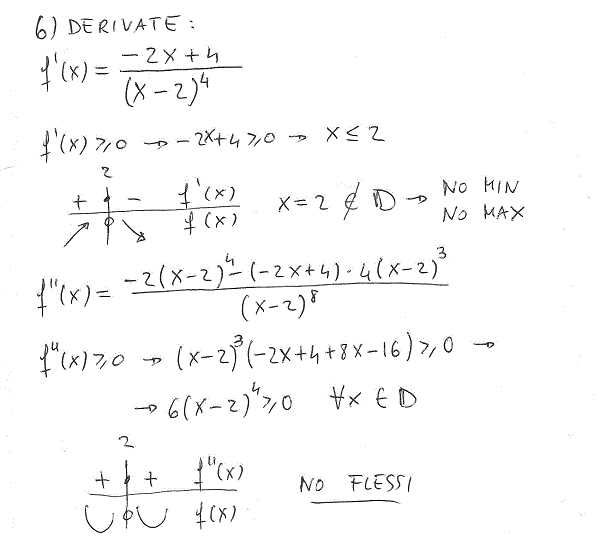 6) DERIVATE:
f'(x) = (-2x+4)/(x-2)^4
f'(x) ≥ 0 → -2x+4 ≥ 0 → x ≤ 2
2
+ - f'(x) x=2 ∉ D → NO MIN
f(x) NO MAX
f''(x) = (-2(x-2)^4 - (-2x+4)·4(x-2)^3)/(x-2)^8
f''(x) ≥ 0 → (x-2)^3(-2x+4+8x-16) ≥ 0 →
→ 6(x-2)^4 ≥ 0 ∀x ∈ D
2
+ + f''(x) NO FLESSI
f(x)